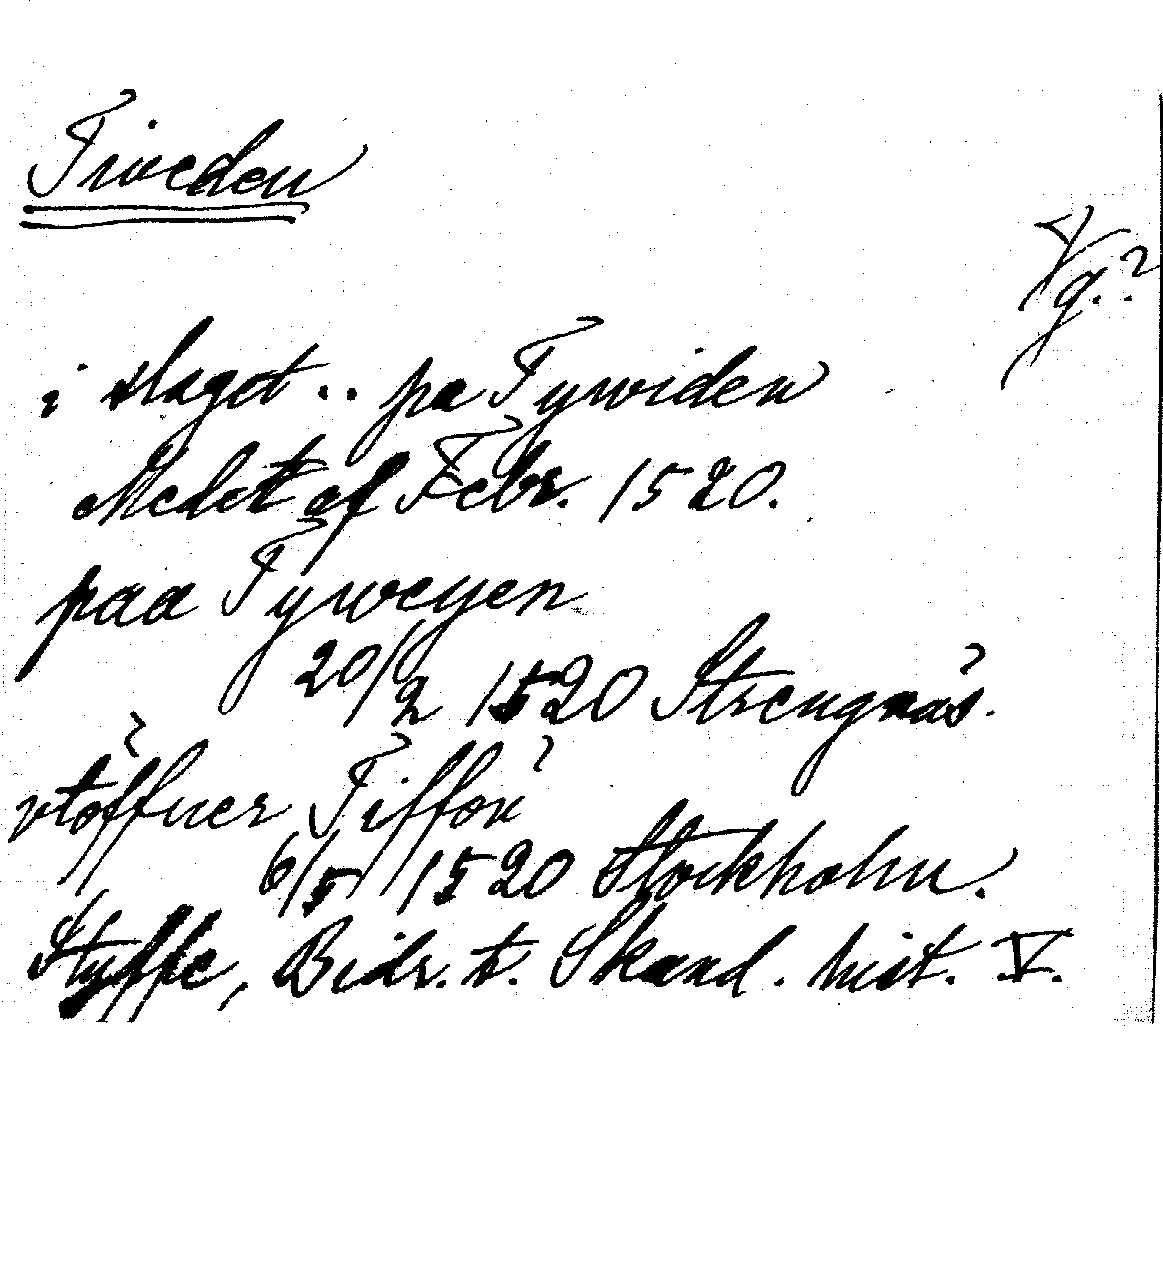 Tiveden
Vg.?
i slaget .. pa Tywiden
Medet af Febr. 1520.
paa Tyweyen
20/2 1520 Strengnäs.
vtöffuer Tiffön
6/5 1520 Stockholm.
Styffe, Bidr. t. Skand. hist. V.